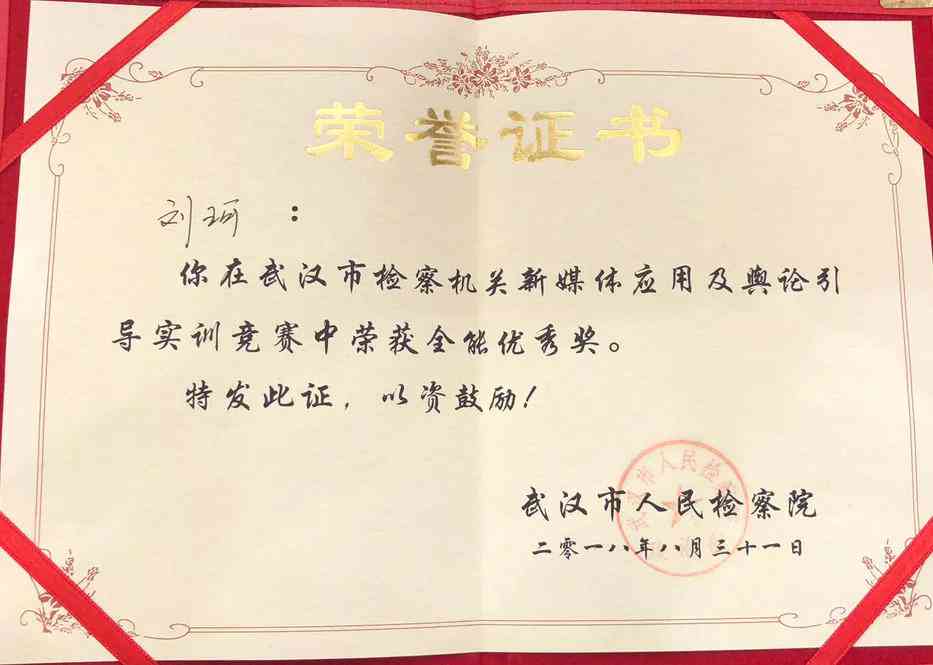 荣誉证书
刘珂：
你在武汉市检察机关新媒体应用及舆论引
导实训竞赛中荣获全能优秀奖。
特发此证，以资鼓励！
武汉市人民检察院
二零一八年八月三十一日
武汉市人民检察院